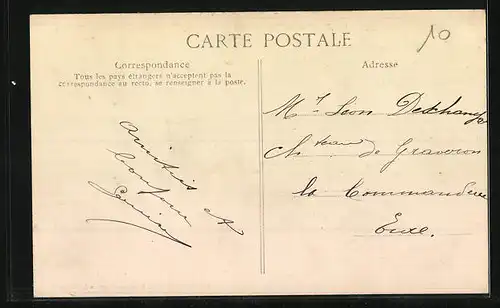 CARTE POSTALE
10
Correspondance
Tous les pays étrangers n'acceptent pas la
correspondance au recto, se renseigner à la poste.
Adresse
Mr Léon Deschamps
Chteau de Graveron
la Commanderie
Eure.
Amitiés